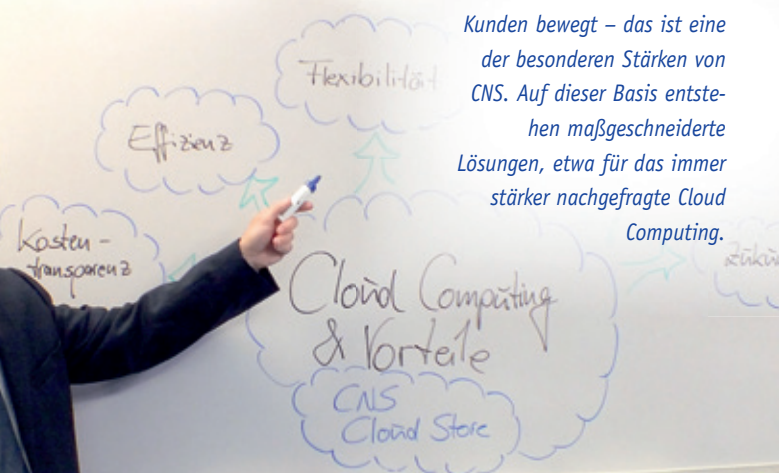 Kunden bewegt – das ist eine
der besonderen Stärken von
CNS. Auf dieser Basis entste-
hen maßgeschneiderte
Lösungen, etwa für das immer
stärker nachgefragte Cloud
Computing.
Flexibilität
Effizienz
Kosten-
transparenz
Cloud Computing
& Vorteile
CNS
Cloud Store